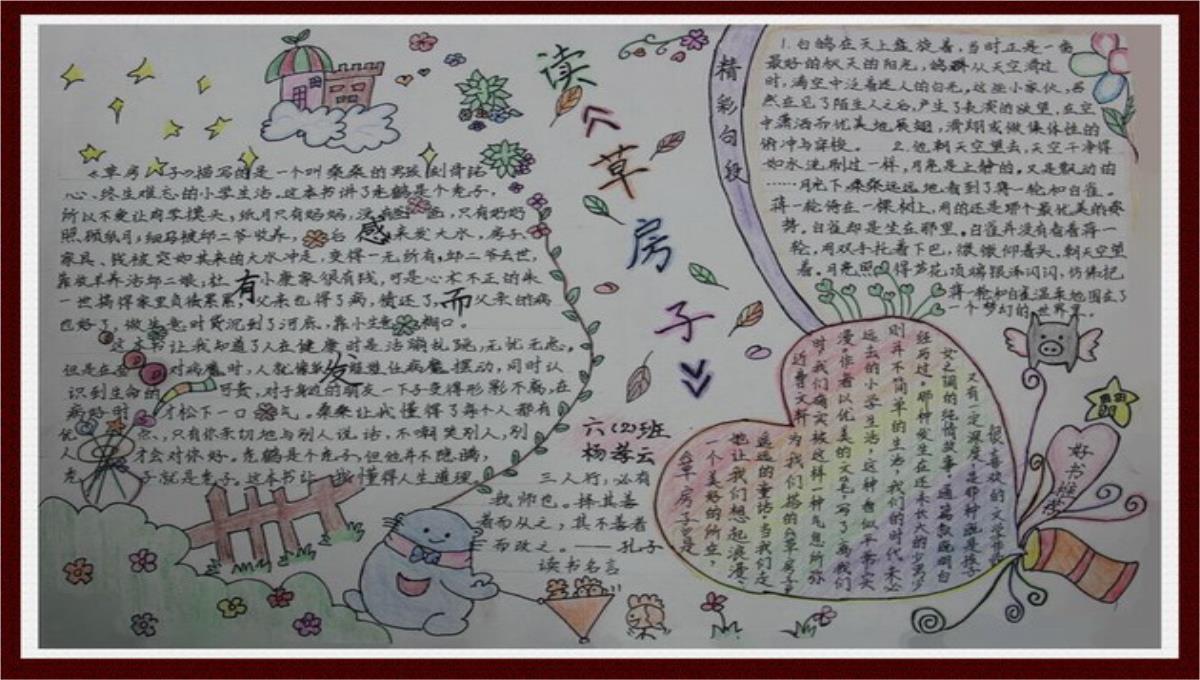 读
《
草
房
子
》
感
有
而
发
六(2)班
《草房子》描写的是一个叫桑桑的男孩刻骨铭
心、终生难忘的小学生活。这本书讲了秃鹤是个秃子,
所以不爱让同学摸头,纸月只有妈妈,没有爸爸,只有奶奶
照顾纸月,细马被邱二爷收养,
来发大水,房子、
家具、钱被突如其来的大水冲走,变得一无所有,邱二爷去世,
靠放羊养活邱二娘,杜
小康家很有钱,可是心术不正的朱
一世搞得家里负债累累,父亲也得了病,债还了,
父亲的病
也好了,做生意时货沉到了河底,靠小生意糊口。
这本书让我知道了人在健康时是活蹦乱跳,无忧无虑。
但是在
对病魔时,人就像
任病魔摆动,同时认
识到生命的
可贵,对于身边的朋友一下子变得形影不离,在
病好时
才松下一口
气。桑桑让我懂得了每个人都有
优
点、只有你亲切地与别人说话,不嘲笑别人,别
人
才会对你好。秃鹤是个秃子,但他并不隐瞒,
秃
子就是秃子。这本书让我懂得人生道理。
三人行,必有
我师也。择其善
者而从之,其不善者
而改之。——孔子
读书名言
精彩句段
1.白鸽在天上盘旋着,当时正是一番
最好的秋天的阳光,鸽群从天空滑过
时,满空中泛着迷人的白光。这些小家伙,居
然在见了陌生人之后,产生了表演的欲望,在空
中潇洒而优美地展翅,滑翔或做集体性的
俯冲与穿梭。 2.他朝天空望去,天空干净得
如水洗刷过一样,月亮是上静的,又是飘动的
……月光下,桑桑远远地看到了蒋一轮和白雀。
蒋一轮倚在一棵树上,用的还是那个最优美的姿
势。白雀却是坐在那里,白雀并没有看着蒋一
轮,用双手托着下巴,微微仰着头,朝天空望
着。月亮照得芦花顶端银泽闪闪,仿佛把
蒋一轮和白雀温柔地围在了
一个梦幻的世界里。
很喜欢的文学作品
又有一定深度,是那种
女之调的纯情故事。通篇叙说明白
经历过。那种发生在还未长大的少男少
则并不简单的生活,我们的时代未必
远去的小学生活,这种看似平常,实
漫。作者以优美的文笔,写了离我们
时,我们确实被这样一种气息所弥
近曹文轩为我们搭的《草房子》
遥远的童话。当我们走
她让我们想起浪漫、
一个美好的所在,
《草房子》是
好书推荐